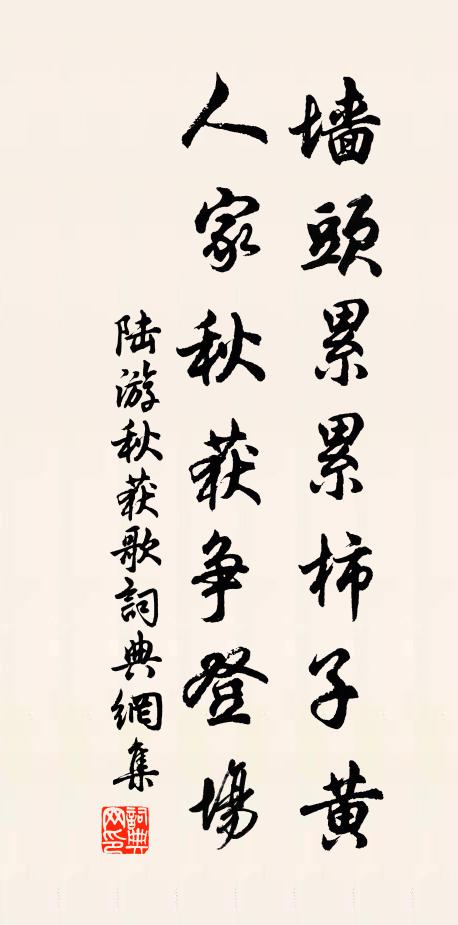 墙頭累累柿子黄
人家秋获争登場
陆游秋获歌詞典網集
詞典网印